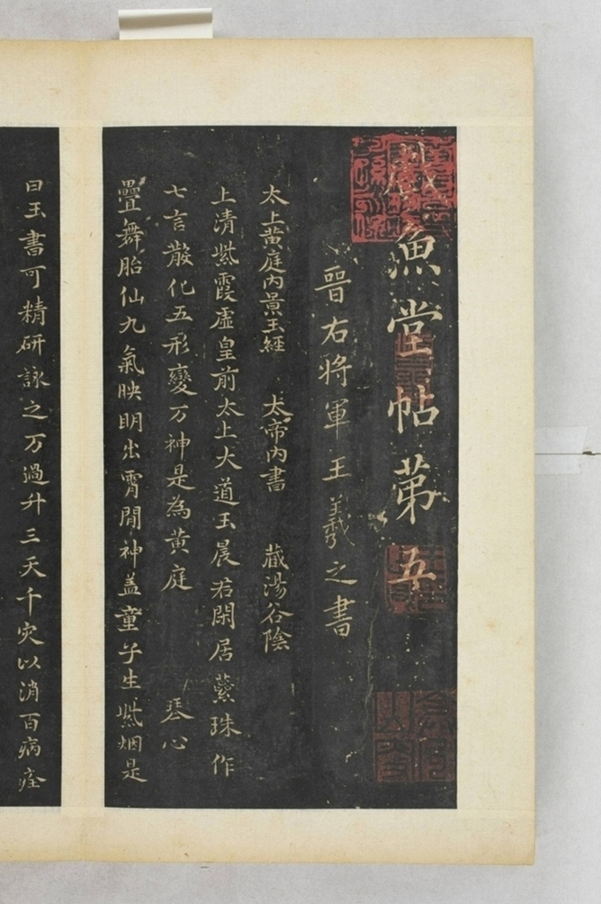 戲魚堂帖第五
晉右將軍王羲之書
太上黃庭內景玉經 太帝內書 藏湯谷陰
上清紫霞虛皇前太上大道玉晨君閑居蘂珠作
七言散化五形變万神是為黃庭 琴心
疊舞胎仙九氣映明出霄間神盖童子生紫烟是
曰玉書可精研詠之万過升三天千灾以消百病痊